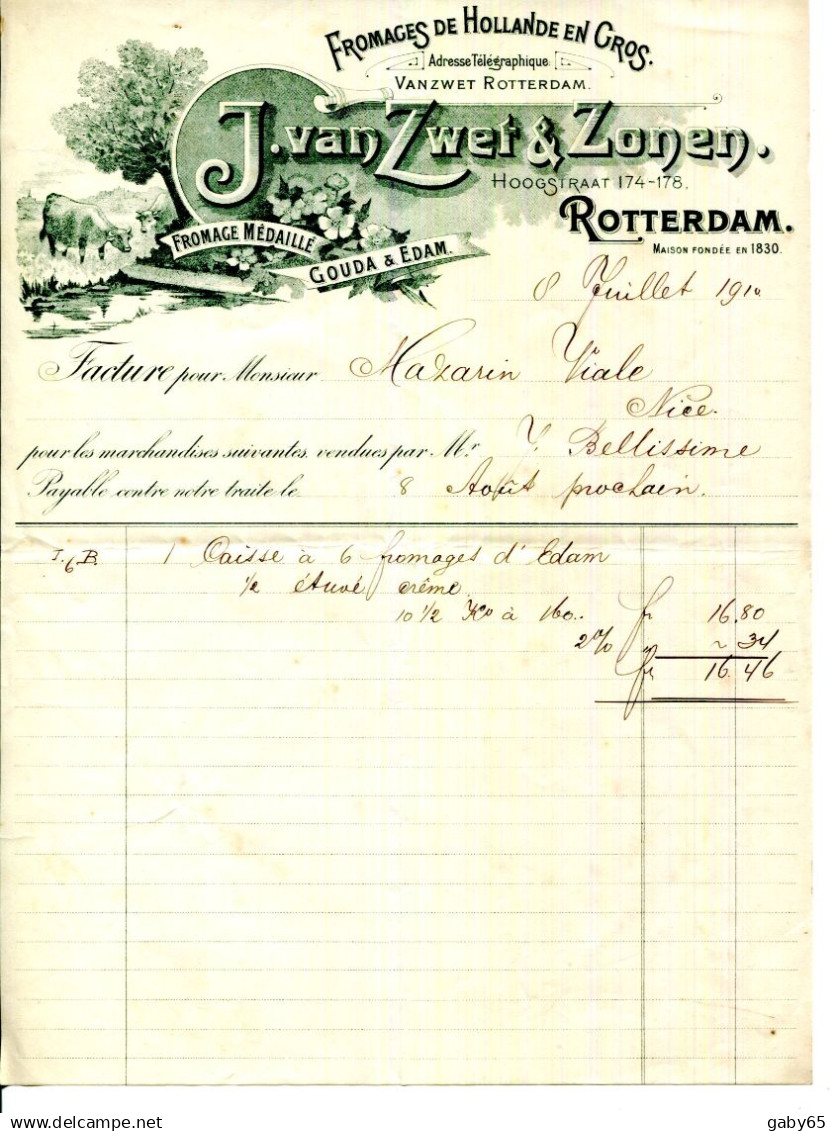 FROMAGES DE HOLLANDE EN GROS.
Adresse Télégraphique
VANZWET ROTTERDAM.
J. van Zwet & Zonen.
HOOGSTRAAT 174-178.
ROTTERDAM.
MAISON FONDÉE EN 1830.
FROMAGE MÉDAILLE
GOUDA & EDAM.
8 Juillet 1910
Facture pour Monsieur Mazarin Viale
Nice.
pour les marchandises suivantes, vendues par Mr. Bellissime
Payable contre notre traite le 8 Août prochain.
I. 6 B. 1 Caisse à 6 fromages d'Edam
1/2 étuvé crême
10 1/2 Ko à 160.. fr 16.80
2% ~ 34
fr 16.46
gaby65